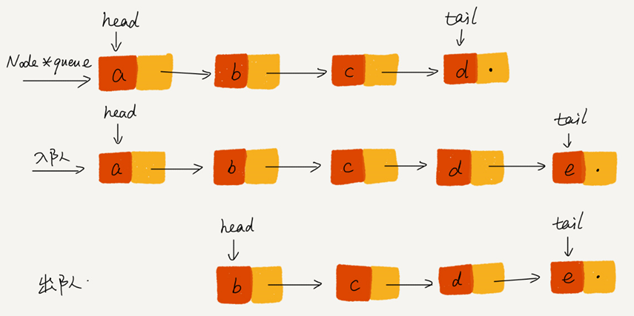 head tail
Node *queue a b c d
head tail
入队 a b c d e
head tail
出队. b c d e